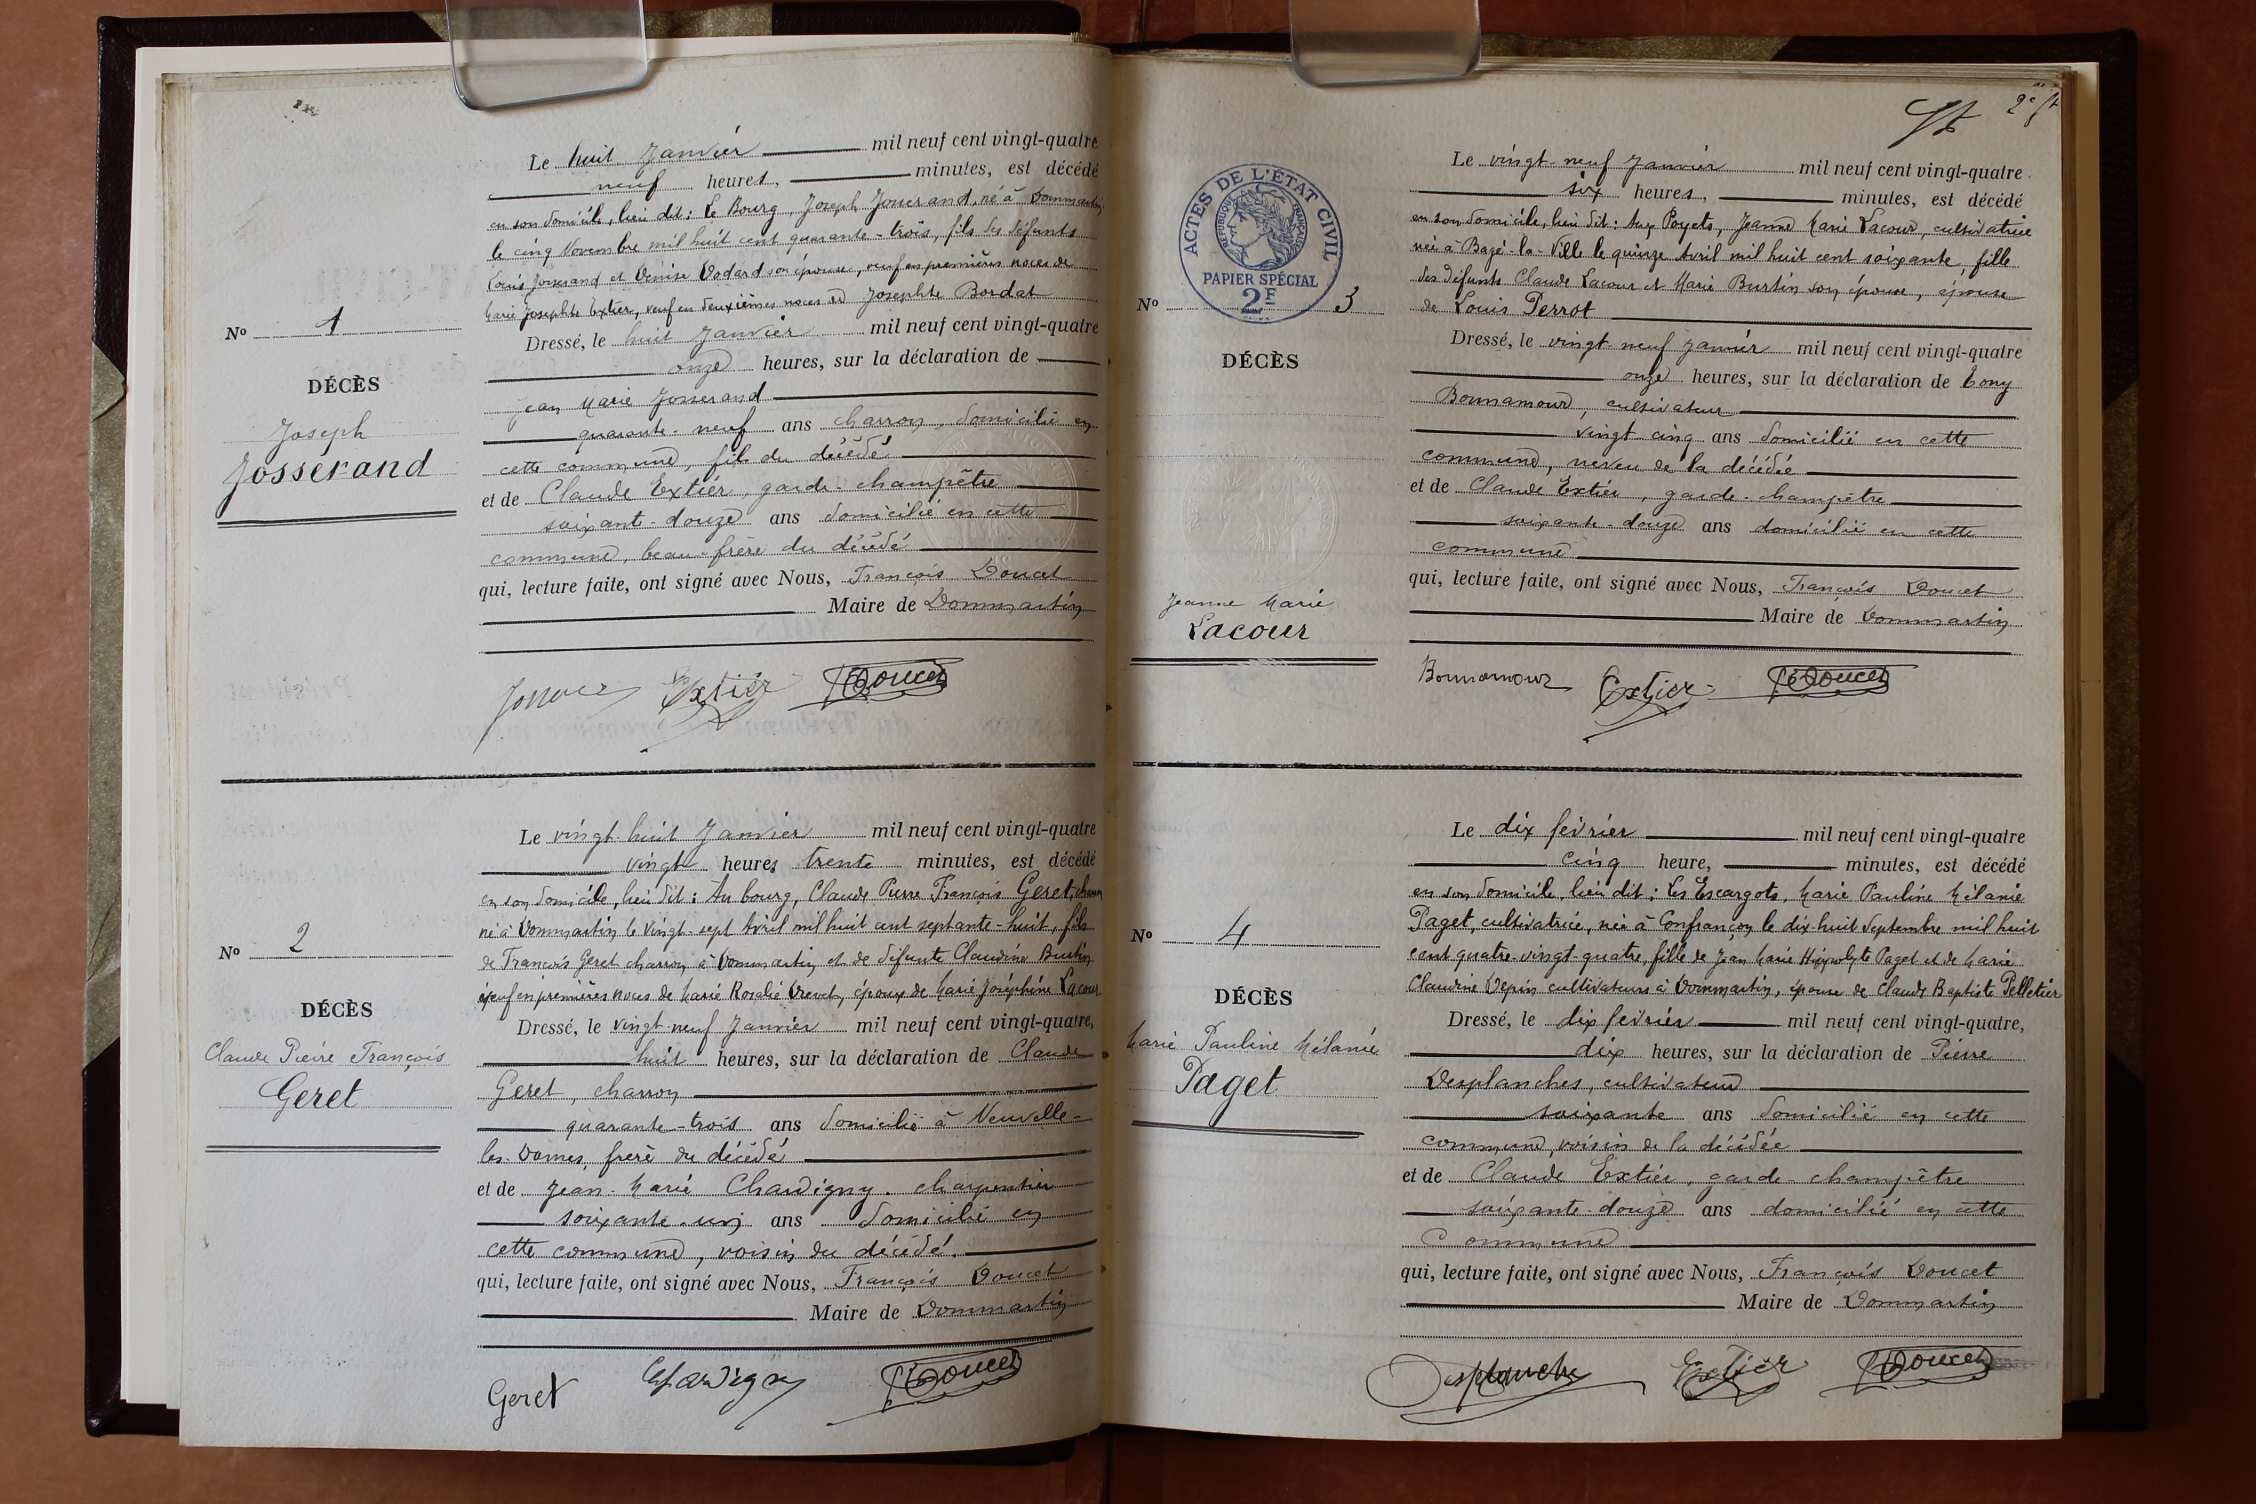 Le huit Janvier mil neuf cent vingt-quatre
neuf heures, minutes, est décédé
en son domicile, lieu dit : Le Bourg, Joseph Josserand, né à Dommartin
le cinq Novembre mil huit cent quarante-trois, fils des défunts
Louis Josserand et Denise Dodard son épouse, veuf en premières noces de
Marie Josephte Extier, veuf en deuxièmes noces de Josephte Bordat
No 1
Dressé, le huit Janvier mil neuf cent vingt-quatre
onze heures, sur la déclaration de
DÉCÈS
Jean Marie Josserand
Joseph
quarante-neuf ans charron, domicilié en
Josserand
cette commune, fils du décédé
et de Claude Extier, garde-champêtre
soixante-douze ans domicilié en cette
commune, beau-frère du décédé
qui, lecture faite, ont signé avec Nous, François Doucet
Maire de Dommartin
Extier Doucet
Le vingt-huit Janvier mil neuf cent vingt-quatre
vingt heures trente minutes, est décédé
en son domicile, lieu dit : Au bourg, Claude Pierre François Geret, charron
né à Dommartin le vingt-sept Avril mil huit cent septante-huit, fils
No 2
de François Geret charron à Dommartin et de défunte Claudine Burtin
veuf en premières noces de Marie Rosalie Drevet, époux de Marie Joséphine Lacour
DÉCÈS
Dressé, le vingt-neuf Janvier mil neuf cent vingt-quatre,
Claude Pierre François
huit heures, sur la déclaration de Claude
Geret
Geret, charron
quarante-trois ans domicilié à Neuville-
les-Dames, frère du décédé
et de Jean-Marie Chavigny, charpentier
soixante-un ans domicilié en
cette commune, voisin du décédé.
qui, lecture faite, ont signé avec Nous, François Doucet
Maire de Dommartin
Geret Chavigny Doucet
2e
Le vingt-neuf Janvier mil neuf cent vingt-quatre
six heures, minutes, est décédé
ACTES DE L'ETAT CIVIL
REPUBLIQUE FRANÇAISE
PAPIER SPÉCIAL
2F
en son domicile, lieu dit : Aux Poyets, Jeanne Marie Lacour, cultivatrice
née à Bagé-la-Ville le quinze Avril mil huit cent soixante, fille
des défunts Claude Lacour et Marie Burtin son épouse, épouse
No 3
de Louis Perrot
Dressé, le vingt-neuf Janvier mil neuf cent vingt-quatre
DÉCÈS
onze heures, sur la déclaration de Tony
Bonnamour, cultivateur
vingt cinq ans domicilié en cette
commune, neveu de la décédée
et de Claude Extier, garde-champêtre
soixante-douze ans domicilié en cette
commune
qui, lecture faite, ont signé avec Nous, François Doucet
Jeanne Marie
Lacour
Maire de Dommartin
Bonnamour Extier Doucet
Le dix février mil neuf cent vingt-quatre
cinq heure, minutes, est décédé
en son domicile, lieu dit : Les Escargots, Marie Pauline Mélanie
Paget, cultivatrice, née à Confrançon le dix-huit Septembre mil huit
No 4
cent quatre-vingt-quatre, fille de Jean Marie Hippolyte Paget et de Marie
Claudine Depin cultivateurs à Dommartin, épouse de Claude Baptiste Pelletier
DÉCÈS
Dressé, le dix février mil neuf cent vingt-quatre,
Marie Pauline Mélanie
dix heures, sur la déclaration de Pierre
Paget
Desplanches, cultivateur
soixante ans domicilié en cette
commune, voisin de la décédée
et de Claude Extier, garde-champêtre
soixante-douze ans domicilié en cette
Commune
qui, lecture faite, ont signé avec Nous, François Doucet
Maire de Dommartin
Desplanche Extier Doucet